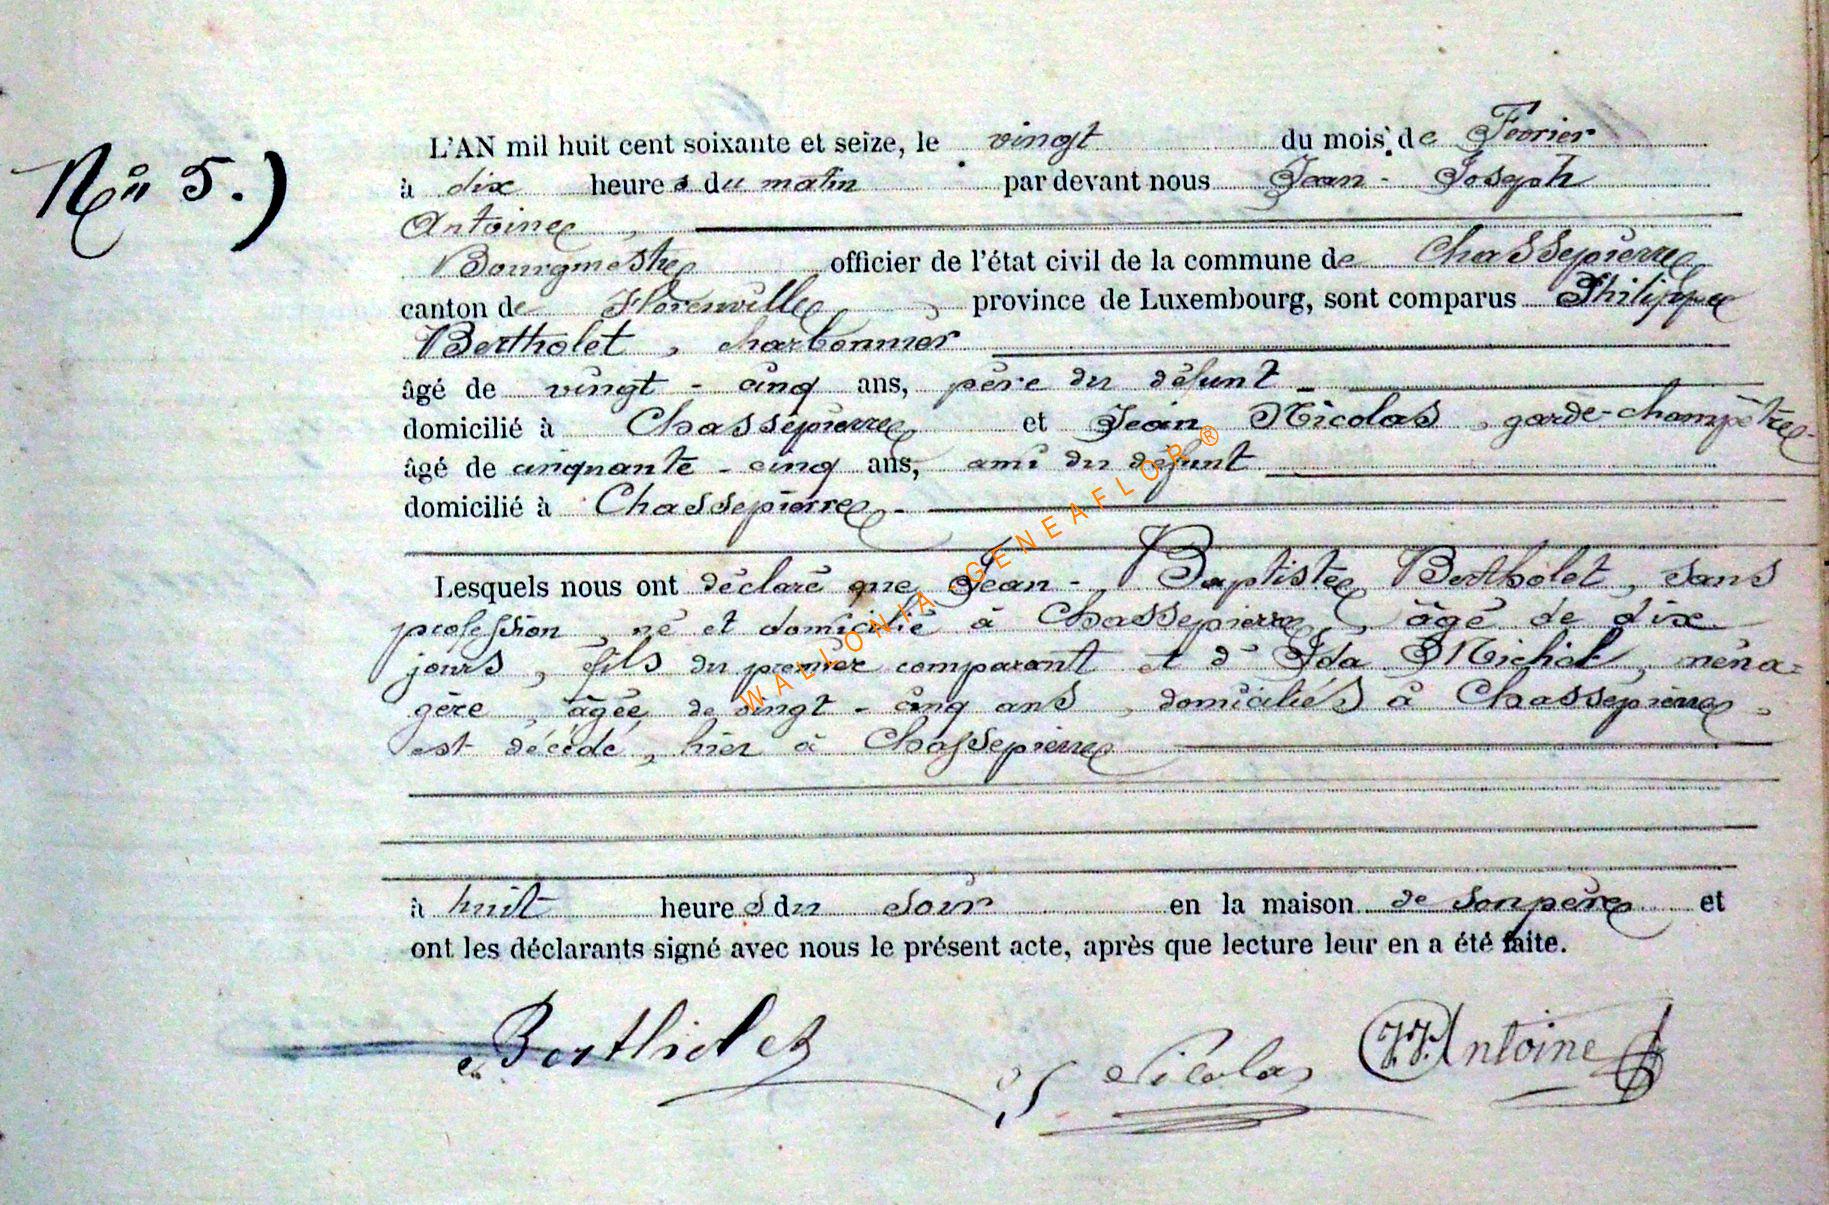 Nº 5.)
L'AN mil huit cent soixante et seize, le vingt du mois de Fevrier
à dix heures du matin par devant nous Jean - Joseph
Antoine,
Bourgmestre officier de l'état civil de la commune de Chassepierre
canton de Florenville, province de Luxembourg, sont comparus Philippe
Bertholet, charbonnier
âgé de vingt - cinq ans, père du défunt -
domicilié à Chassepierre et Jean Nicolas, garde-champêtre
âgé de cinquante - cinq ans, ami du défunt
domicilié à Chassepierre -
Lesquels nous ont déclaré que Jean - Baptiste Bertholet, sans
profession, né et domicilié à Chassepierre, âgé de dix
jours, fils du premier comparant et d'Ida Michel, ména=
gère, âgée de vingt - cinq ans, domiciliés à Chassepierre,
est décédé, hier à Chassepierre
à huit heures du soir en la maison de son père et
ont les déclarants signé avec nous le présent acte, après que lecture leur en a été faite.
Bertholet J Nicolas J.J. Antoine
WALLONIA GENEAFLOR ®